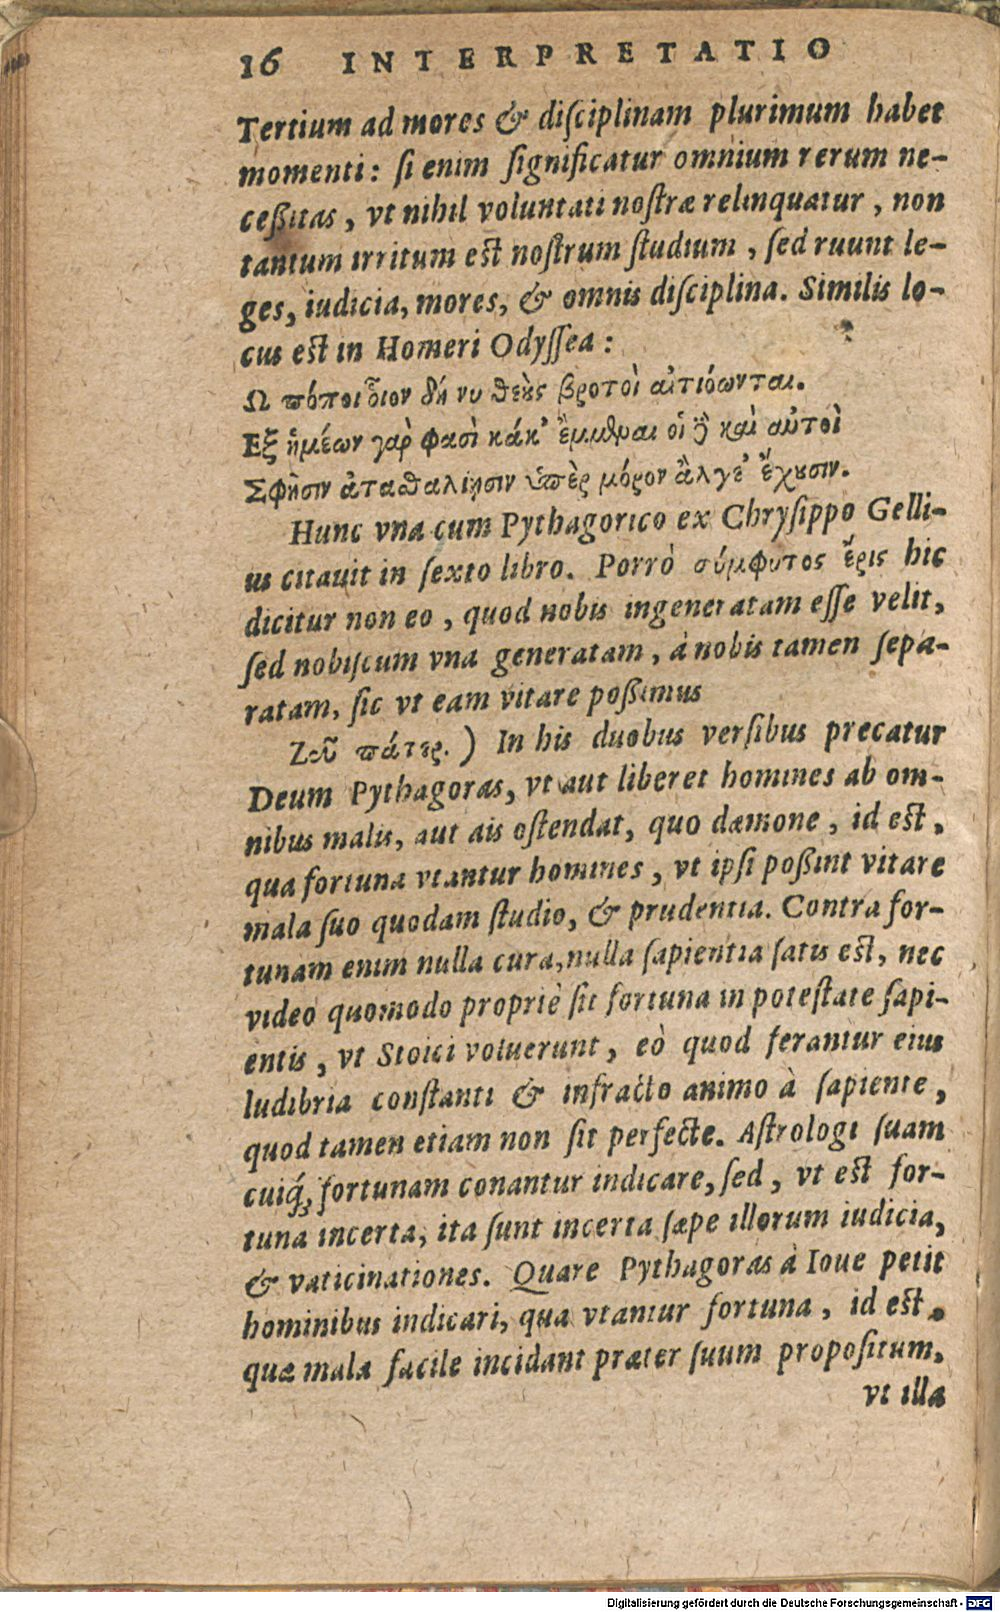 16 INTERPRETATIO
Tertium ad mores & diſciplinam plurimum habet
momenti: ſi enim ſignificatur omnium rerum ne-
ceßitas, vt nihil voluntati noſtræ relinquatur, non
tantum irritum eſt noſtrum ſtudium, ſed ruunt le-
ges, iudicia, mores, & omnis diſciplina. Similis lo-
cus eſt in Homeri Odyſſea:
Ω πόποι οἷον δή νυ θεοὺς βροτοὶ αἰτιόωνται.
Εξ ἡμέων γαρ φασὶ κάκ' ἔμμεναι οἱ δὲ καὶ αὐτοὶ
Σφῇσιν ἀταθαλίῃσιν ὑπὲρ μόρον ἄλγε' ἔχουσιν.
Hunc vna cum Pythagorico ex Chryſippo Gelli-
us citauit in ſexto libro. Porrò σύμφυτος ἔρις hic
dicitur non eo, quod nobis ingeneratam eſſe velit,
ſed nobiſcum vna generatam, à nobis tamen ſepa-
ratam, ſic vt eam vitare poßimus
Ζεῦ πάτερ.) In his duobus verſibus precatur
Deum Pythagoras, vt aut liberet homines ab om-
nibus malis, aut ais oſtendat, quo dæmone, id eſt,
qua fortuna vtantur homines, vt ipſi poßint vitare
mala ſuo quodam ſtudio, & prudentia. Contra for-
tunam enim nulla cura, nulla ſapientia ſatis eſt, nec
video quomodo propriè ſit fortuna in poteſtate ſapi-
entis, vt Stoici voluerunt, eò quod ferantur eius
ludibria conſtanti & infracto animo à ſapiente,
quod tamen etiam non ſit perfecte. Aſtrologi ſuam
cuiq́; fortunam conantur indicare, ſed, vt eſt for-
tuna incerta, ita ſunt incerta ſæpe illorum iudicia,
& vaticinationes. Quare Pythagoras à Ioue petit
hominibus indicari, qua vtantur fortuna, id eſt,
quæ mala facile incidant præter ſuum propoſitum,
vt illa
Digitalisierung gefördert durch die Deutsche Forschungsgemeinschaft - DFG